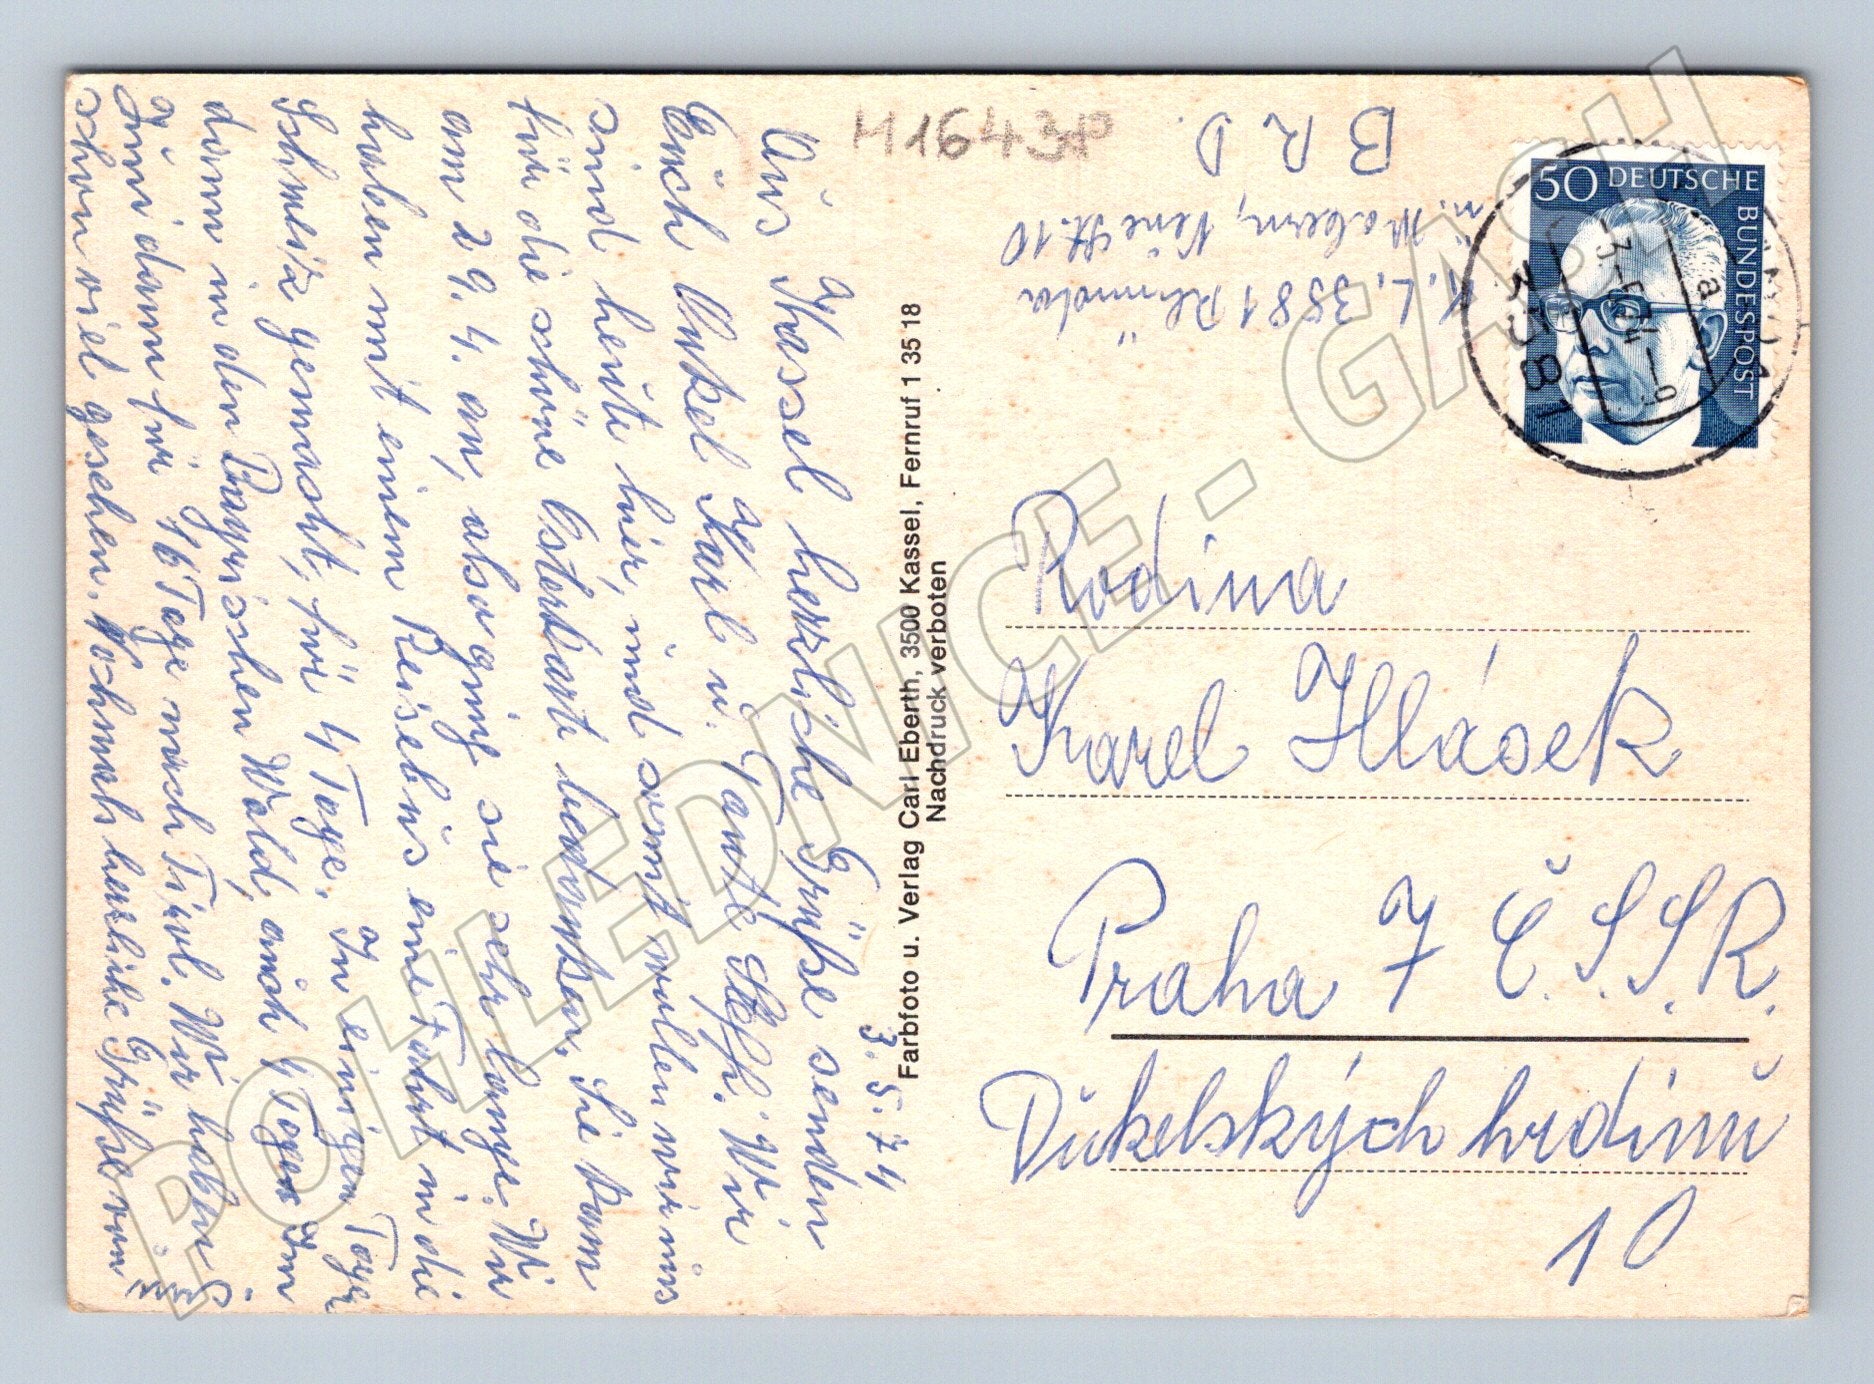 3. 5. 74
Aus Kassel herzliche Grüße senden
Euch Onkel Karl u. Tante Steffi. Wir
sind heute hier, und somit wollen wir uns
für die schöne Osterkarte bedanken. Sie kam
am 29. 4. an, also ging sie sehr lange. Wir
haben mit einem Reisebus eine Fahrt in die
Schweiz gemacht, für 4 Tage. In einigen Tagen
dann in den Bayrischen Wald, auch 4 Tage. Im
Juni dann für 16 Tage nach Tirol. Wir haben
schon viel gesehen. Nochmals herzliche Grüße von
Farbfoto u. Verlag Carl Eberth, 3500 Kassel, Fernruf 1 35 18
Nachdruck verboten
M1643P
K. L. 3581
10
B R D.
50 DEUTSCHE BUNDESPOST
-3.-5.74-9
a
3581
Rodina
Karel Hlásek
Praha 7 Č.S.S.R.
Dukelských hrdinů
10
POHLEDNICE - GASH